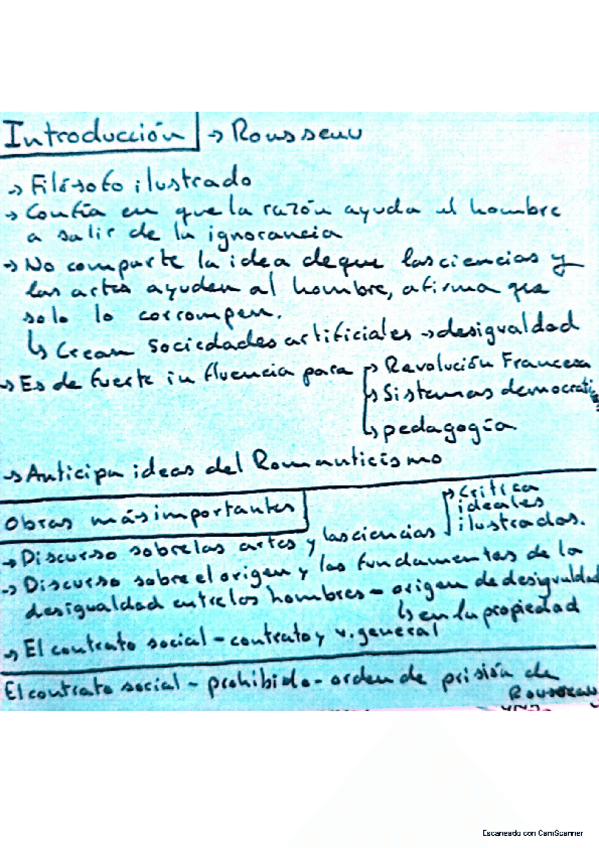 Introducción → Rousseau
→ Filósofo ilustrado
→ Confía en que la razón ayuda el hombre
a salir de la ignorancia
→ No comparte la idea de que las ciencias y
las artes ayuden al hombre, afirma que
solo lo corrompen.
↳ Crean sociedades artificiales → desigualdad
→ Es de fuerte influencia para → Revolución Francesa
→ Sistemas democráti
↳ pedagogía
→ Anticipa ideas del Romanticismo
Obras más importantes
→ Discurso sobre las artes y las ciencias → Crítica ideales ilustrados.
→ Discurso sobre el origen y los fundamentos de la
desigualdad entre los hombres - origen de desigualdad
↳ en la propiedad
→ El contrato social - contrato y v. general
El contrato social - prohibido - orden de prisión de
Rousseau
Escaneado con CamScanner